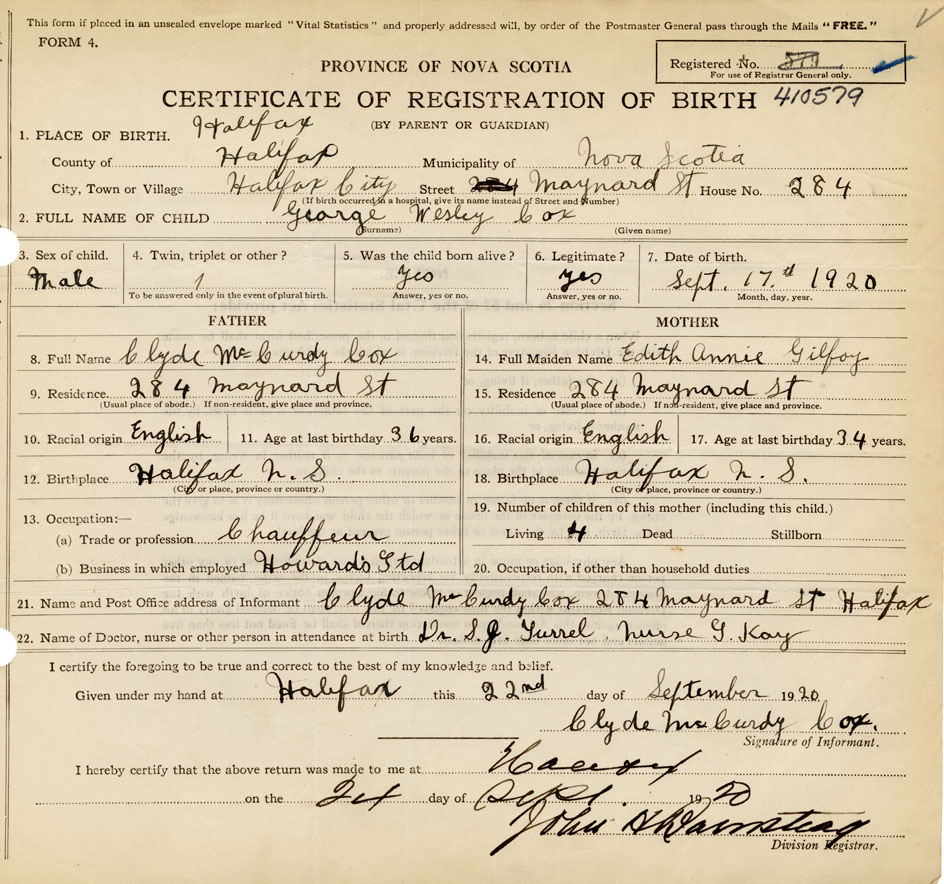 This form if placed in an unsealed envelope marked "Vital Statistics" and properly addressed will, by order of the Postmaster General pass through the Mails "FREE."
FORM 4.
Registered No.
For use of Registrar General only.
PROVINCE OF NOVA SCOTIA
CERTIFICATE OF REGISTRATION OF BIRTH 410579
(BY PARENT OR GUARDIAN)
1. PLACE OF BIRTH. Halifax
County of Halifax Municipality of Nova Scotia
City, Town or Village Halifax City Street 284 Maynard St House No. 284
(If birth occurred in a hospital, give its name instead of Street and Number)
2. FULL NAME OF CHILD George Wesley Cox
(Surname) (Given name)
3. Sex of child. 4. Twin, triplet or other? 5. Was the child born alive? 6. Legitimate? 7. Date of birth.
Male 1 Yes yes Sept. 17.d 1920
To be answered only in the event of plural birth. Answer, yes or no. Answer, yes or no. Month, day, year.
FATHER MOTHER
8. Full Name Clyde Mc Curdy Cox 14. Full Maiden Name Edith Annie Gilfoy
9. Residence. 284 Maynard St 15. Residence 284 Maynard St
(Usual place of abode.) If non-resident, give place and province. (Usual place of abode.) If non-resident, give place and province.
10. Racial origin English 11. Age at last birthday 36 years. 16. Racial origin English 17. Age at last birthday 34 years.
12. Birthplace Halifax N. S. 18. Birthplace Halifax N. S.
(City or place, province or country.) (City or place, province or country.)
13. Occupation:— 19. Number of children of this mother (including this child.)
(a) Trade or profession Chauffeur Living 4 Dead Stillborn
(b) Business in which employed Howard's Ltd 20. Occupation, if other than household duties.
21. Name and Post Office address of Informant Clyde Mc Curdy Cox 284 Maynard St Halifax
22. Name of Doctor, nurse or other person in attendance at birth Dr. S.J. Turrel. Nurse G. Kay
I certify the foregoing to be true and correct to the best of my knowledge and belief.
Given under my hand at Halifax this 22nd day of September 1920
Clyde Mc Curdy Cox.
Signature of Informant.
I hereby certify that the above return was made to me at Halifax
on the day of Sept. 1920
John
Division Registrar.